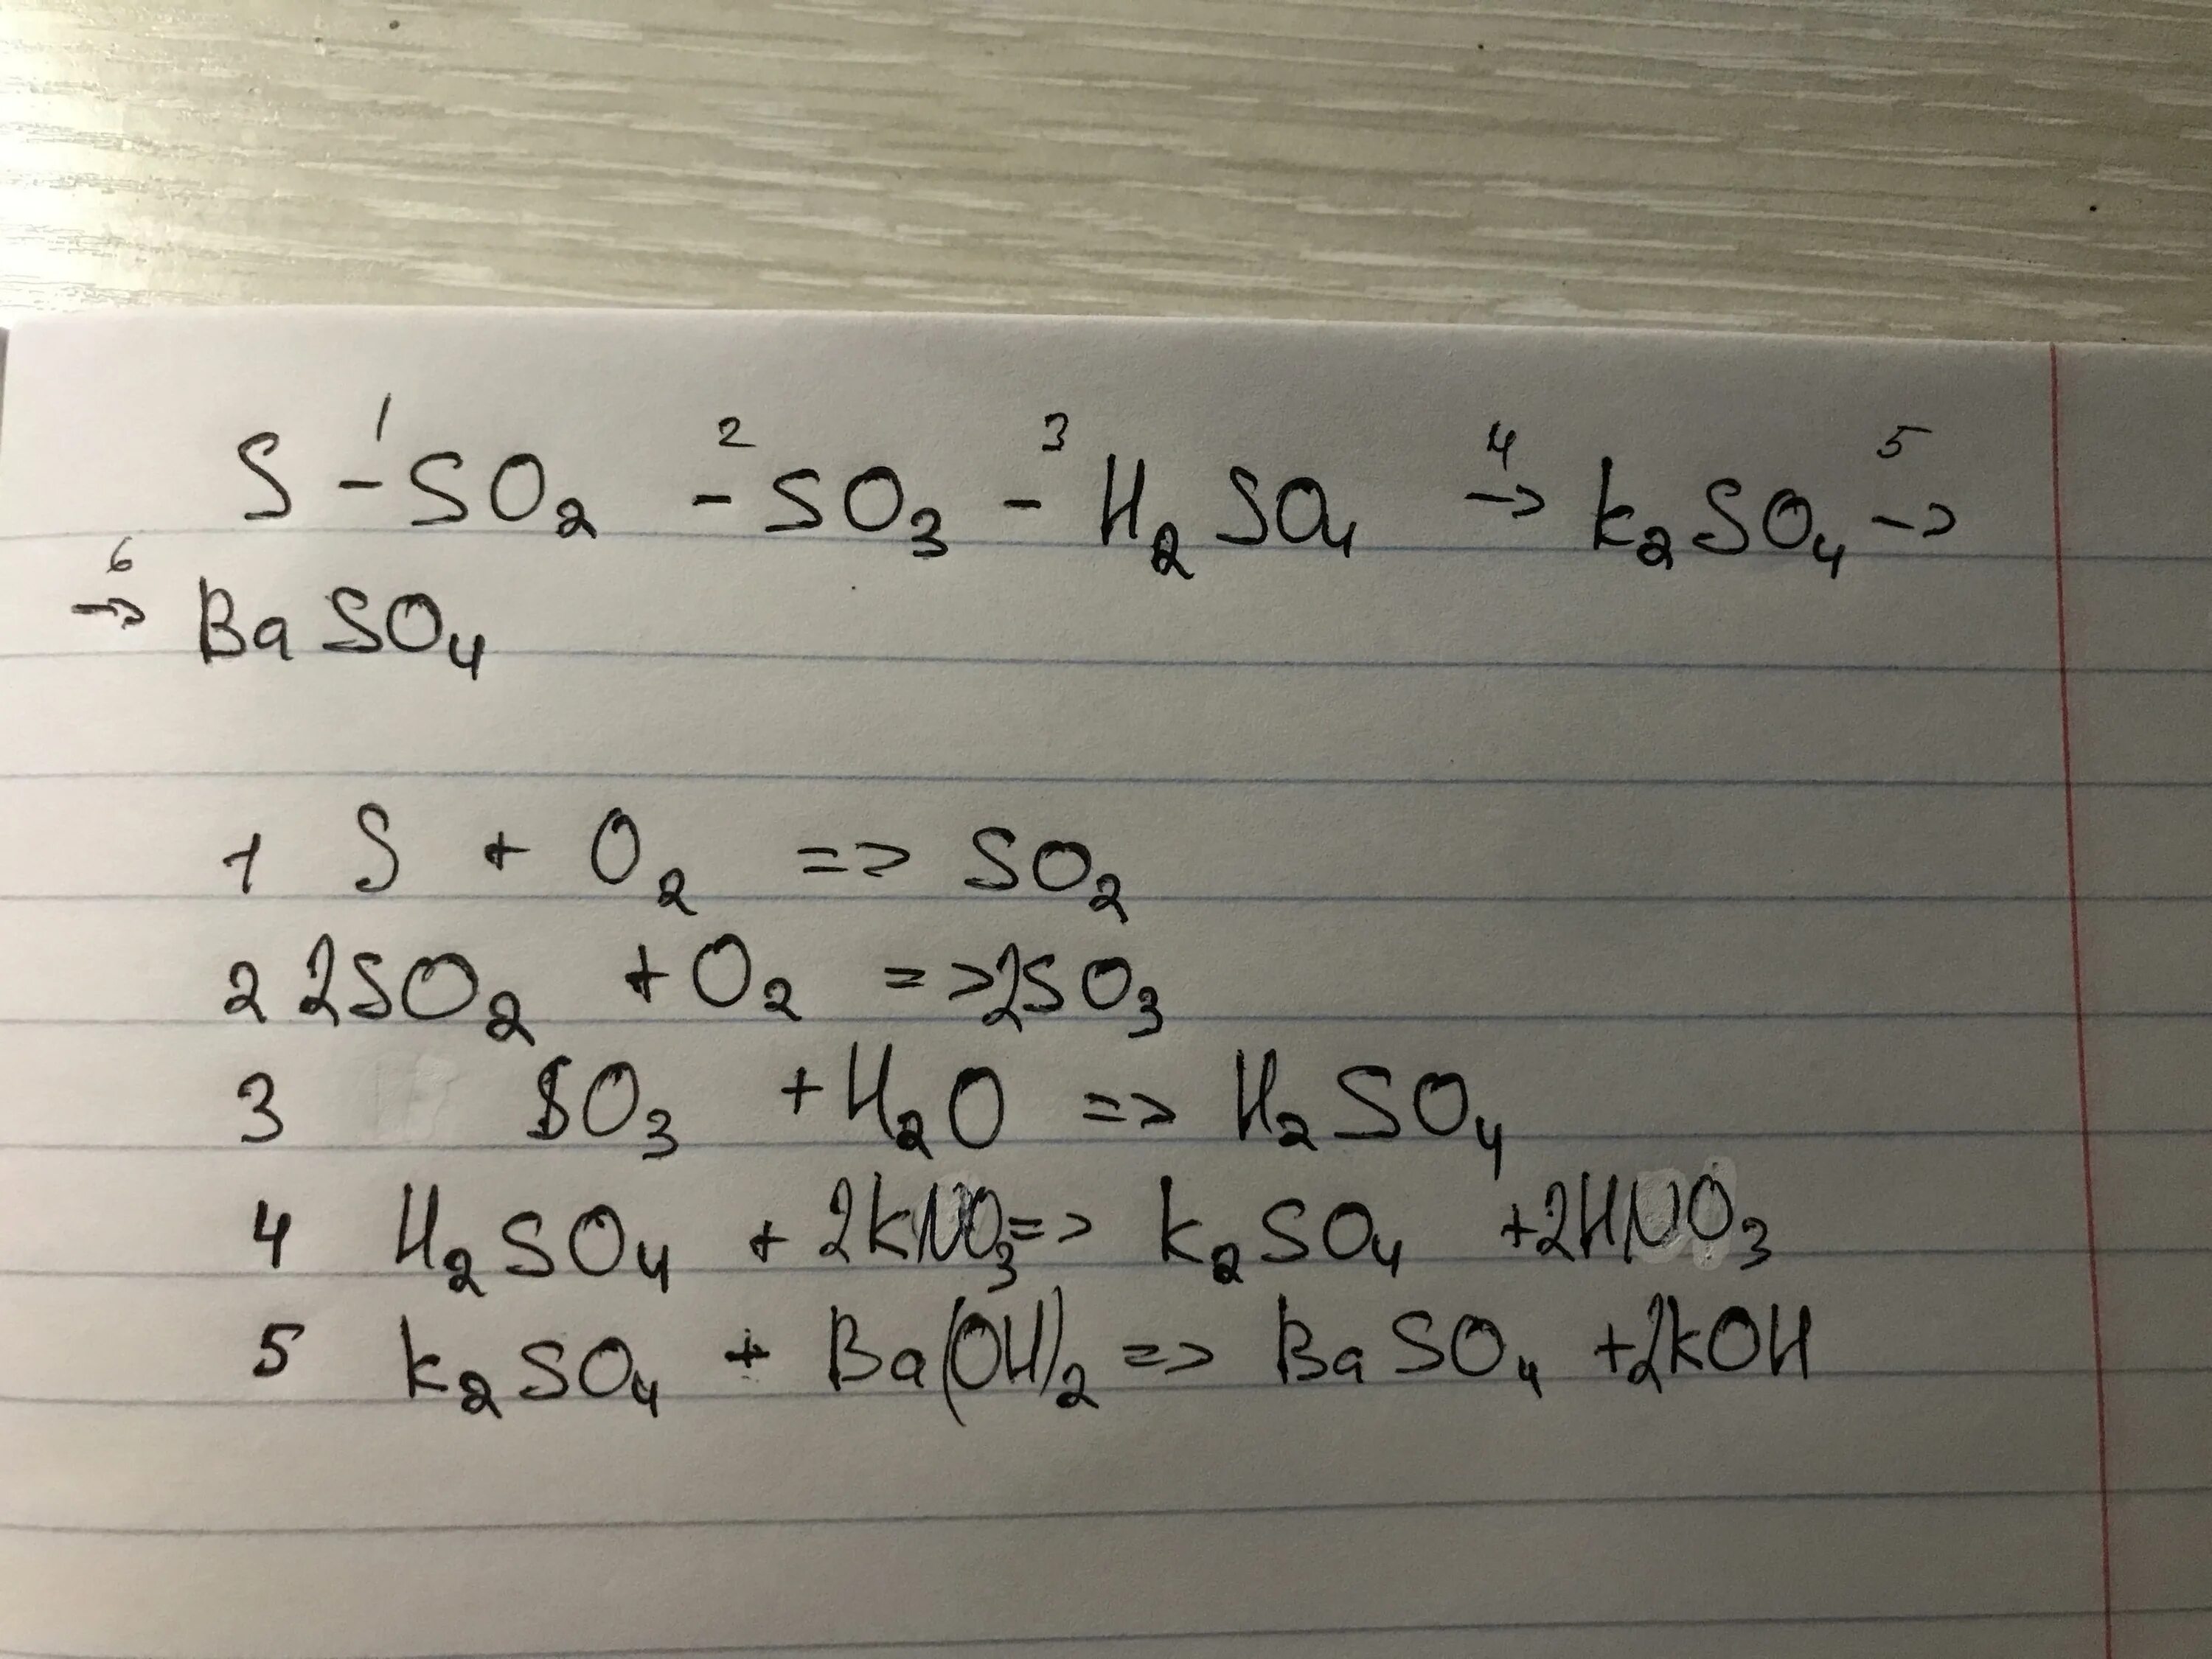 S -¹ SO₂ -² SO₃ -³ H₂SO₄ →⁴ k₂SO₄ →⁵
→⁶ BaSO₄
1 S + O₂ => SO₂
2 2SO₂ + O₂ => 2SO₃
3 SO₃ + H₂O => H₂SO₄
4 H₂SO₄ + 2kNO₃ => k₂SO₄ + 2HNO₃
5 k₂SO₄ + Ba(OH)₂ => BaSO₄ + 2kOH